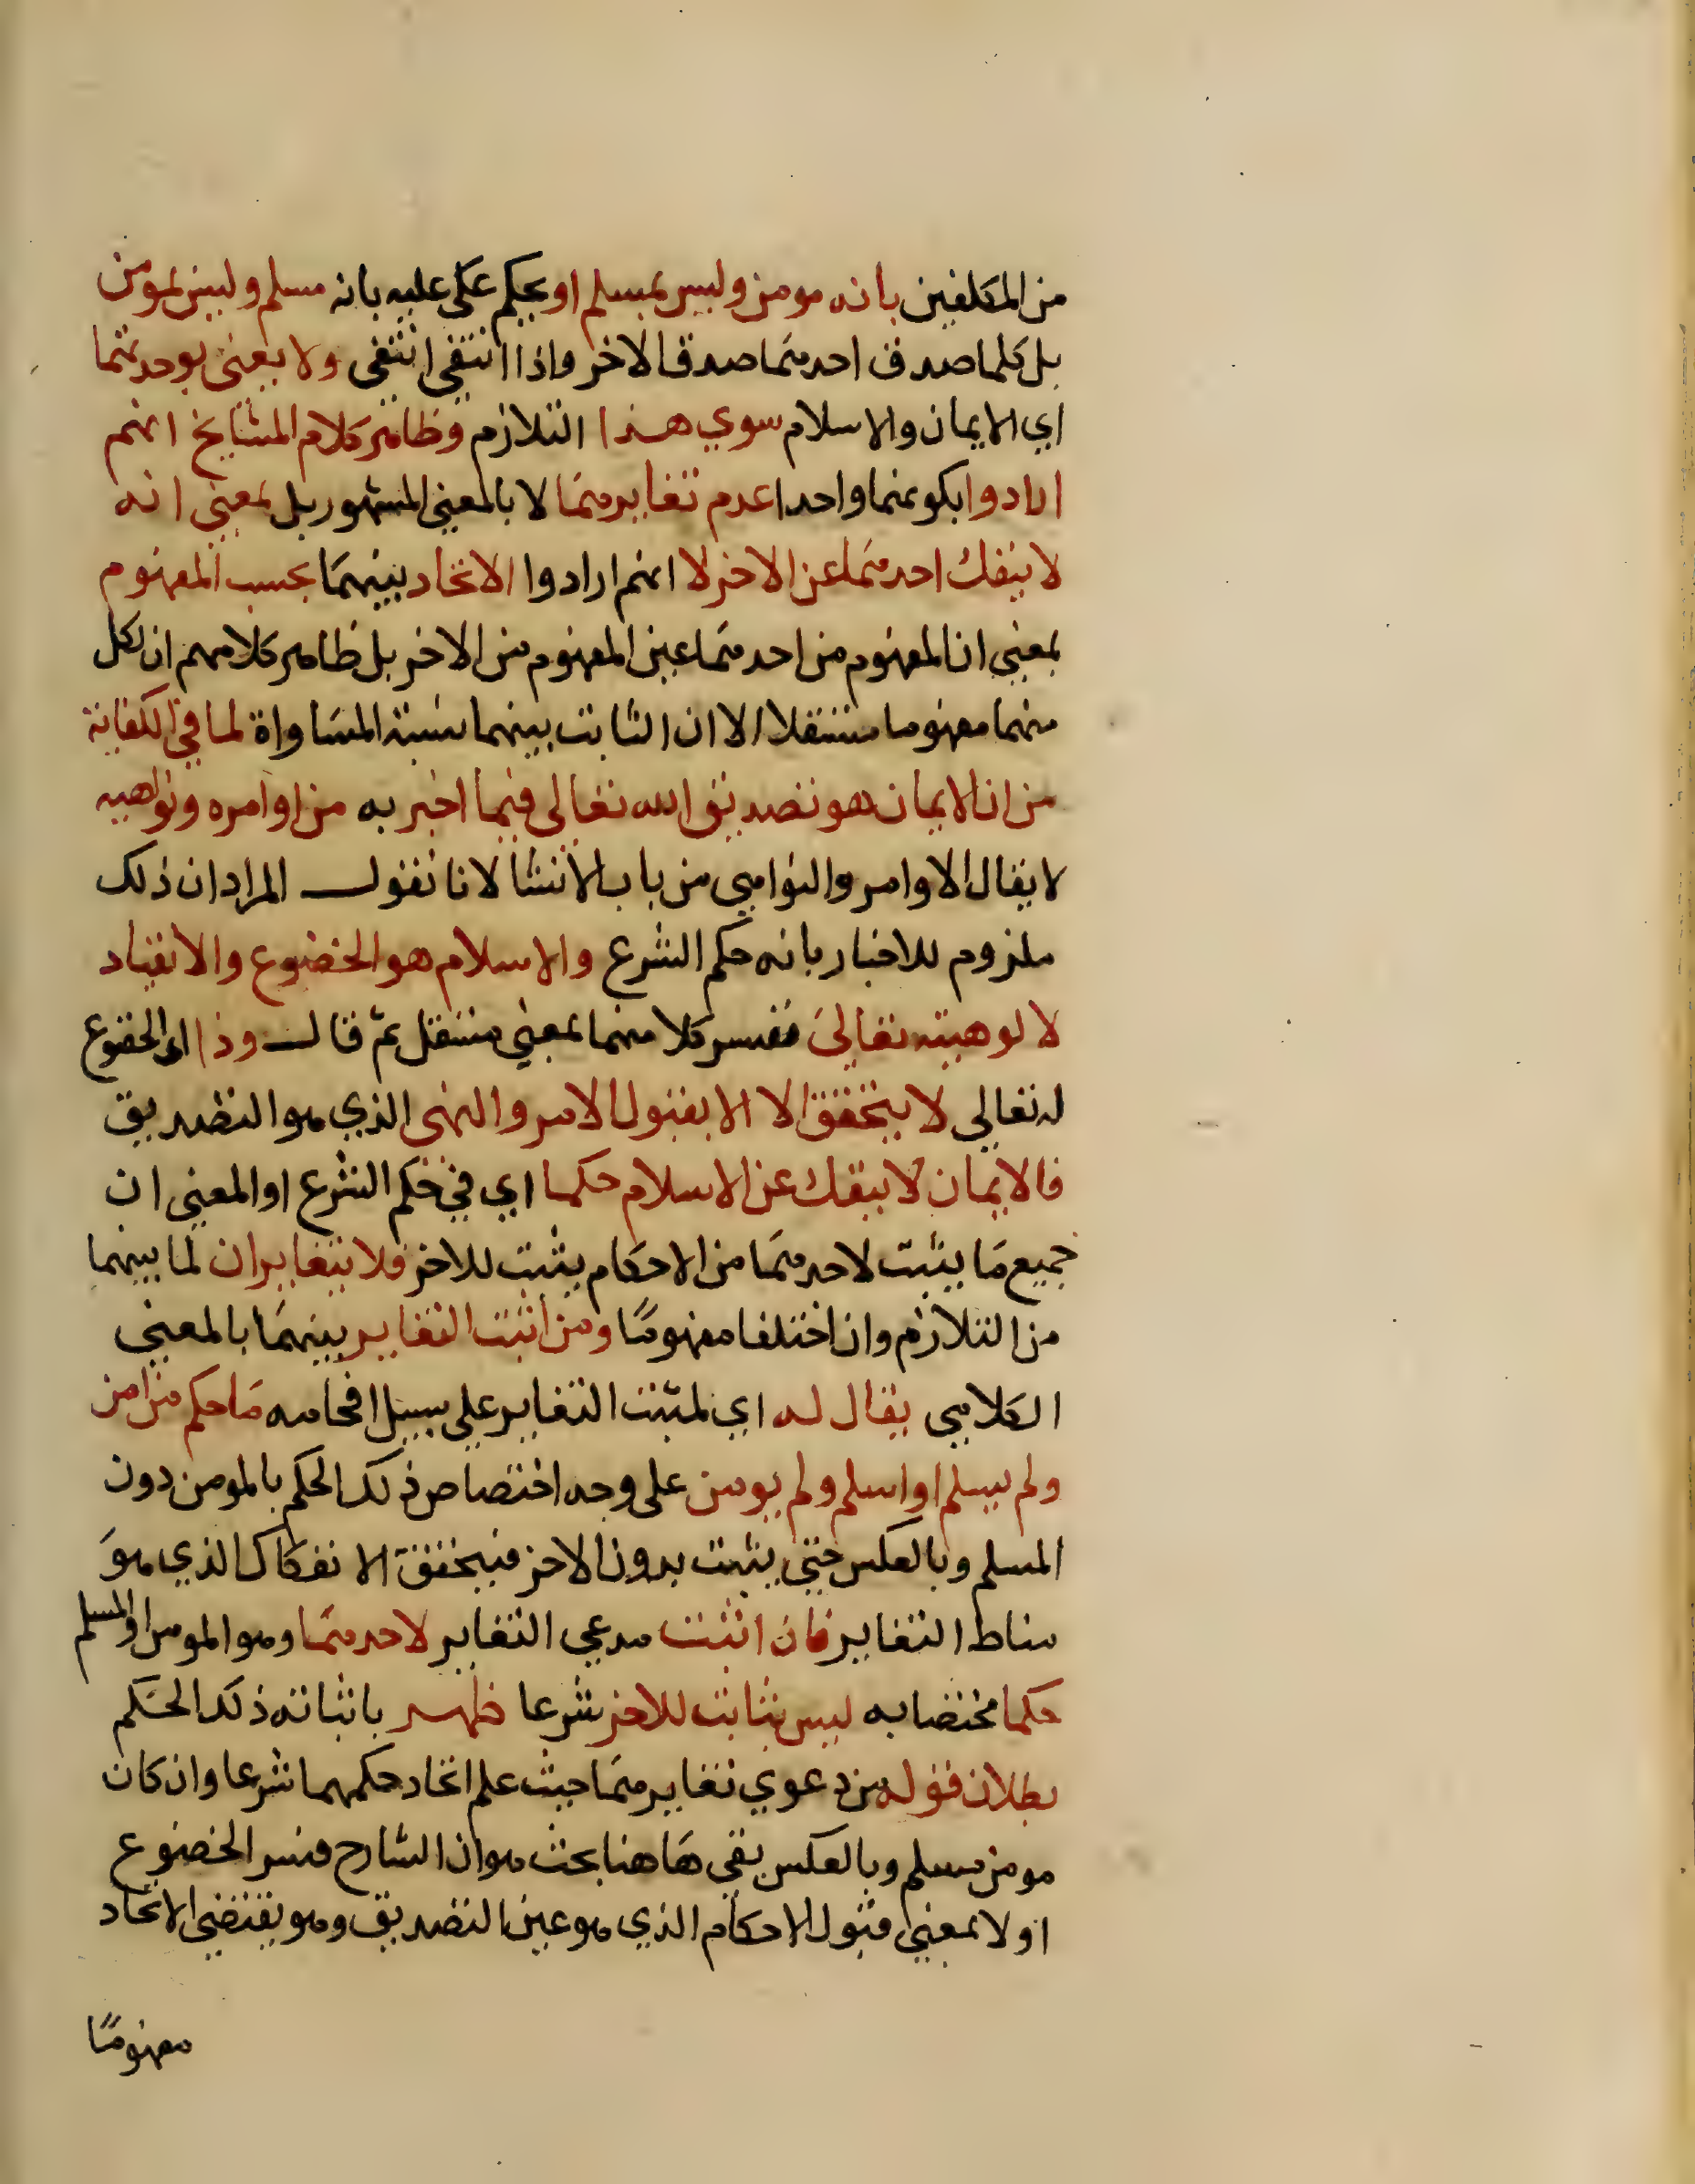 من المكلفين بانه مومن وليس بمسلم او يحكم على عليه بانه مسلم وليس بمومن
بل كلما صدق احدهما صدق الاخر واذا انتفى انتفى ولا يعنى بوحدتهما
اي الايمان والاسلام سوي هذا التلازم وظاهر كلام المشايخ انهم
ارادوا بكونهما واحدا عدم تغايرهما لا بالمعني المشهور بل بمعني انه
لا ينفك احدهما عن الاخر لا انهم ارادوا الاتحاد بينهما بحسب المفهوم
بمعني ان المفهوم من احدهما عين المفهوم من الاخر بل ظاهر كلامهم ان لكل
منهما مفهوما مستقلا الا ان الثابت بينهما نسبة المساواة لما في الكفاية
من ان الايمان هو تصديق الله تعالى فيما اخبر به من اوامره ونواهيه
لا يقال الاوامر والنواهي من باب الانشا لانا نقول المراد ان ذلك
ملزوم للاخبار بانه حكم الشرع والاسلام هو الخضوع والانقياد
لالوهيته تعالى ففسر كلا منهما بمعني مستقل ثم قال وذا اي الخضوع
له تعالي لا يتحقق الا الا بقبول الامر والنهي الذي هو التصديق
فالايمان لا ينفك عن الاسلام حكما اي في حكم الشرع او المعني ان
جميع ما يثبت لاحدهما من الاحكام يثبت للاخر فلا يتغايران لما بينهما
من التلازم وان اختلفا مفهوما ومن اثبت التغاير بينهما بالمعني
الكلامي يقال له اي لمثبت التغاير علي سبيل افحامه ما حكم من امن
ولم يسلم او اسلم ولم يومن على وجه اختصاص ذلك الحكم بالمومن دون
المسلم وبالعكس حتي يثبت بدون الاخر فيتحقق الانفكاك الذي هو
مناط التغاير فان اثبت مدعي التغاير لاحدهما وهو المومن او المسلم
حكما مختصا به ليس بثابت للاخر شرعا ظهر باثباته ذلك الحكم
بطلان قوله من دعوي تغايرهما حيث علم اتحاد حكمهما شرعا وان كان
مومن مسلم وبالعكس بقي هاهنا بحث هو ان الشارح فسر الخضوع
اولا بمعني قبول الاحكام الذي هو عين التصديق وهو يقتضي الاتحاد
مفهوما